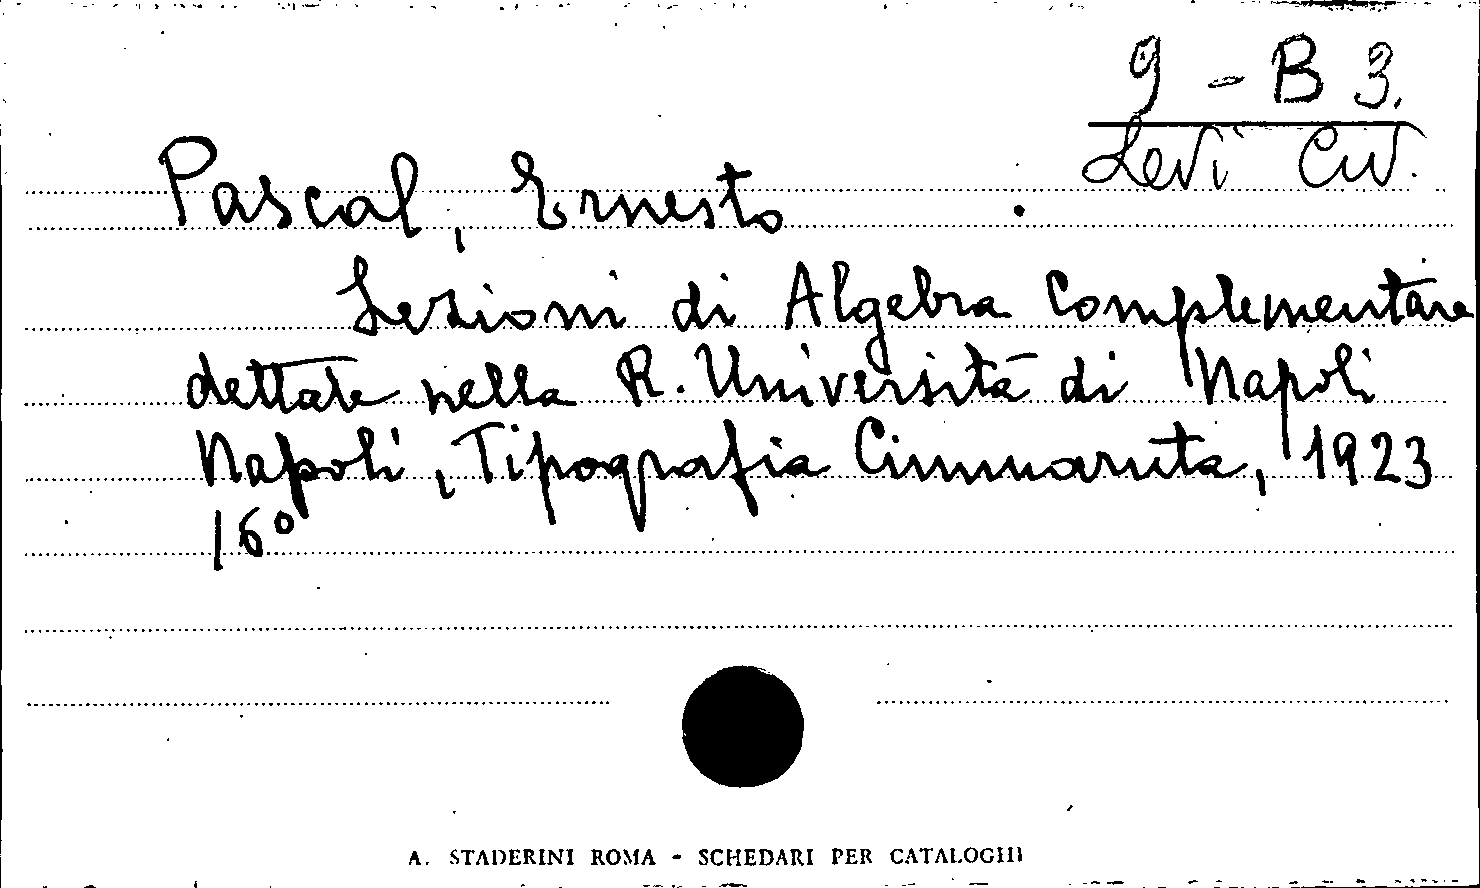 9 - B 3.
Levi Civ.
Pascal, Ernesto
Lezioni di Algebra Complementare
dettate nella R. Università di Napoli
Napoli, Tipografia Cimmaruta, 1923
16º
A. STADERINI ROMA - SCHEDARI PER CATALOGHI